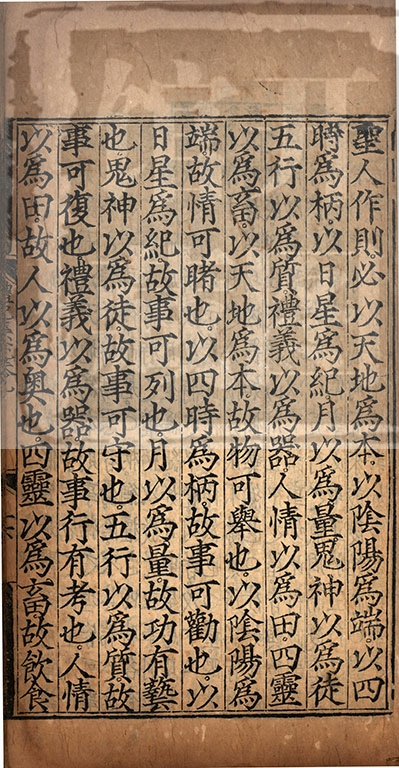 聖人作則。必以天地爲本。以陰陽爲端。以四
時爲柄。以日星爲紀。月以爲量。鬼神以爲徒。
五行以爲質。禮義以爲器。人情以爲田。四靈
以爲畜。以天地爲本。故物可舉也。以陰陽爲
端。故情可睹也。以四時爲柄。故事可勸也。以
日星爲紀。故事可列也。月以爲量。故功有藝
也。鬼神以爲徒。故事可守也。五行以爲質。故
事可復也。禮義以爲器。故事行有考也。人情
以爲田。故人以爲奥也。四靈以爲畜。故飲食